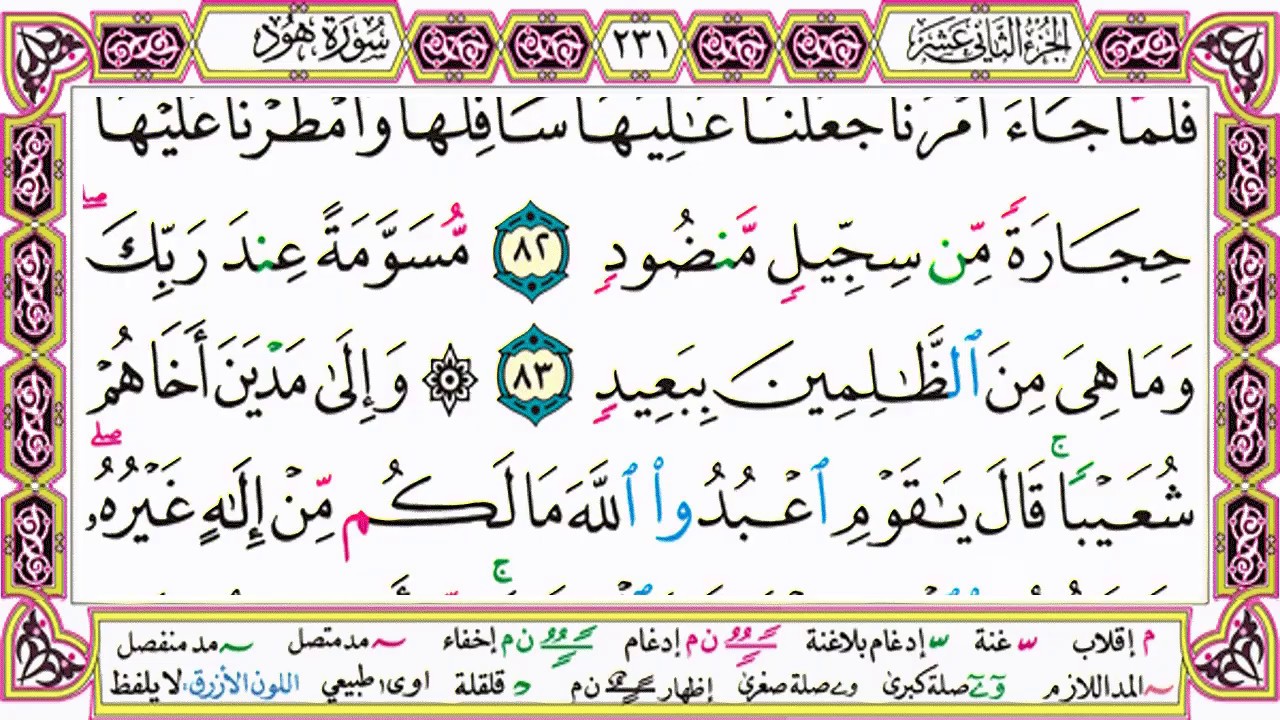 الجزء الثاني عشر ٢٣١ سُورَةُ هُود
فَلَمَّا جَآءَ أَمْرُنَا جَعَلْنَا عَٰلِيَهَا سَافِلَهَا وَأَمْطَرْنَا عَلَيْهَا
حِجَارَةً مِّن سِجِّيلٍ مَّنضُودٍ ٨٢ مُّسَوَّمَةً عِندَ رَبِّكَ ۖ
وَمَا هِىَ مِنَ ٱلظَّٰلِمِينَ بِبَعِيدٍ ٨٣ ۞ وَإِلَىٰ مَدْيَنَ أَخَاهُمْ
شُعَيْبًا ۚ قَالَ يَٰقَوْمِ ٱعْبُدُوا۟ ٱللَّهَ مَا لَكُم مِّنْ إِلَٰهٍ غَيْرُهُۥ ۖ
م إقلاب غنة إدغام بلاغنة ن م إدغام ن م إخفاء مد متصل مد منفصل
المد اللازم صلة كبرى صلة صغرى إظهار ن م د قلقلة اوى طبيعي اللون الأزرق: لا يلفظ